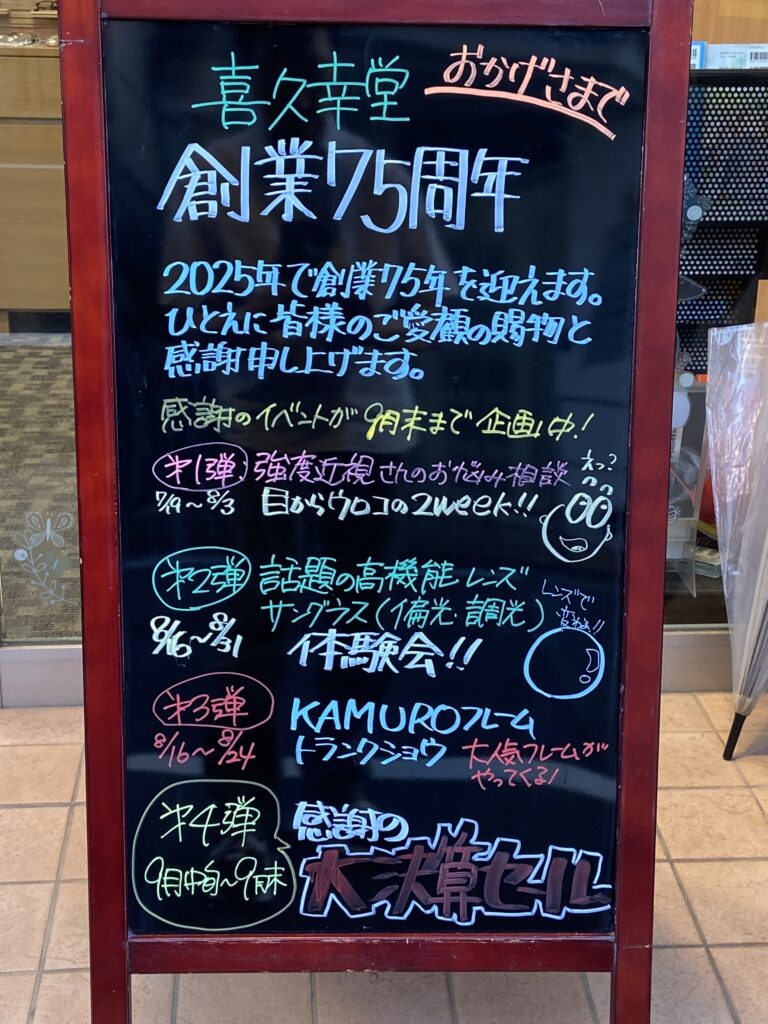 喜久幸堂 おかげさまで
創業75周年
2025年で創業75年を迎えます。
ひとえに皆様のご愛顧の賜物と
感謝申し上げます。
感謝のイベントが9月末まで企画中!
才1弾: 強度近視さんのお悩み相談
7/19〜8/3 目からウロコの2week!!
えっ?
才2弾 話題の高機能レンズ
サングラス(偏光 調光)
8/16〜8/31 体験会!!
レンズで
変わる!!
才3弾 KAMUROフレーム
8/16〜8/24 トランクショウ 大人気フレームが
やってくる!
才4弾 感謝の
9月中旬〜9月末 大決算セール